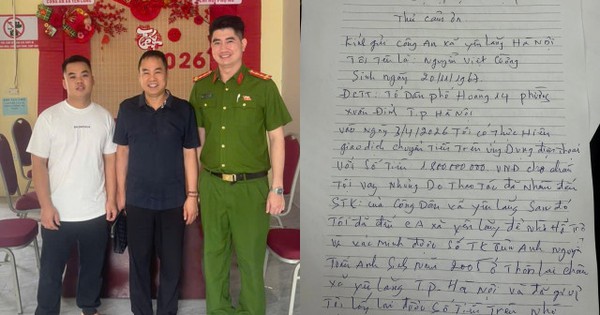 Tết
2026
Thư cảm ơn
Kính gửi Công An xã yên Lãng HÀ NỘI
Tôi Tên là Nguyễn Viết Công
Sinh ngày 20/11/1967.
ĐCTT: Tổ Dân phố Hoàng 14 phường
Xuân Đỉnh T.P HÀ NỘI
vào ngày 3/4/2026 Tôi có thực Hiện
giao dịch chuyển Tiền Trên ứng Dụng điện thoại
Với Số Tiền 1.800.000.000. VNĐ
Tôi vay Nhưng Do Thao Tác đã Nhầm đến
STK: của Công Dân xã yên Lãng Sau đó
Tôi đã đến CA xã yên Lãng để Nhờ Hỗ Trợ
và xác Minh được Số TK của Anh Nguyễn
Tuấn Anh Sinh Năm 2005 ở Thôn Lai Châu
xã yên Lãng T.P. Hà Nội và đã giúp
Tôi lấy lại được Số Tiền Trên Nhờ